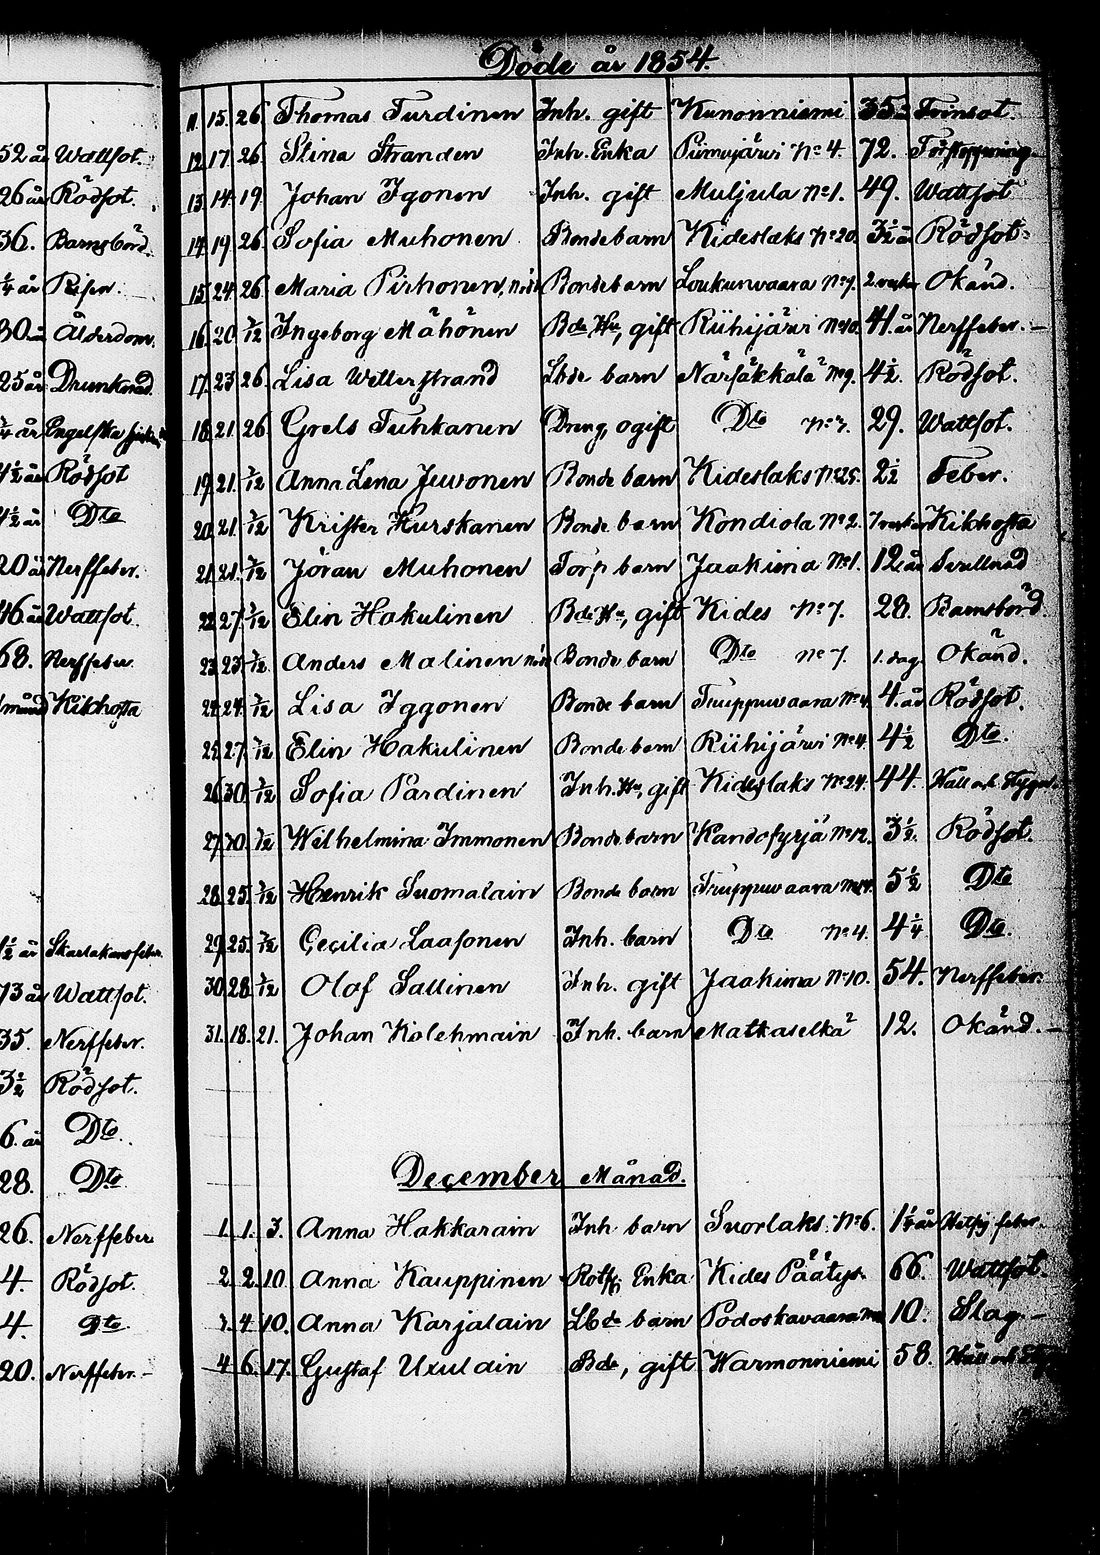 52 år Wattsot.
26 år Rödsot.
36. Barnsbörd.
¼ år Risen.
30 år Ålderdom.
25 år Drunknad.
¼ år Engelska
4½ år Rödsot
4½ år Dto
20 år Nerffeber.
46 år Wattsot.
68. Nerffeber
Kikhosta
½ år Skarlakansfeber.
73 år Wattsot.
35. Nerffeber.
3½ Rödsot.
6. år Dto.
28. Dto
26. Nerffeber
4. Rödsot.
4. Dto.
20. Nerffeber. -
Döde år 1854.
11. 15. 26 Thomas Turdinen Inh. gift Kunonniemi 35 år Tvinsot.
12 17 26 Stina Stranden Inh. Enka Piimäjärvi No 4. 72. Förstoppning
13. 14. 19. Johan Igonen Inh. gift Muljula No 1. 49. Wattsot
14 19 26 Sofia Muhonen Bonde barn Kideslaks No 20 3½ år Rödsot
15 24 26 Maria Pirhonen, Bonde barn Loukunvaara No 7. 2 veckor Okänd.
16. 20 7/12 Ingeborg Mähönen Bde Hu, gift Riihijärvi No 10. 41. år Nerffeber. -
17. 23 26. Lisa Wetterstrand Lbde barn Närsäkkälä No 9. 4½. Rödsot.
18. 21. 26 Grels Tuhkanen Dreng, ogift Dto No 7. 29. Wattsot.
19. 21. 7/12 Anna Lena Juvonen Bonde barn Kideslaks No 25. 2½ Feber.
20. 21. 7/12 Krister Hurskanen Bonde barn Kondiola No 2. 7 veckor Kikhosta
21. 21. 7/12 Jöran Muhonen Torp barn Jaakima No 1. 12 år Svullnad
22 27 7/12 Elin Hakulinen Bde Hu, gift Kides No 7. 28. Barnsbörd.
23. 23. 7/12. Anders Malinen Bonde barn Dto No 7. 1. dag. Okänd.
24. 24. 7/12 Lisa Iggonen Bonde barn Truppuwaara No 4. 4. år Rödsot.
25. 27. 7/12 Elin Hakulinen Bonde barn Riihijärvi No 4. 4½ Dto.
26. 30. 7/12 Sofia Pardinen Inh. Hu, gift Kideslaks No 24. 44. Håll och Stygn.
27. 30. 7/12 Wilhelmina Immonen Bonde barn No 12. 3½. Rödsot.
28. 25. 7/12 Henrik Suomalain Bonde barn Truppuwaara 5½ Dto
29. 25. 7/12 Cecilia Laasonen Inh. barn Dto No 4. 4¼ Dto.
30. 28. 7/12 Olof Sallinen Inh. gift Jaakima No 10. 54. Nerffeber.
31. 18. 21. Johan Kolehmain Inh. barn Matkaselkä 12. Okänd. -
December Månad.
1. 1. 3. Anna Hakkarain Inh barn Suorlaks No 6. 1¼ år feber.
2. 2. 10. Anna Kauppinen Enka Kides Päätye 66. Wattsot.
3. 4. 10. Anna Karjalain Lbde barn Podoskavaara 10. Slag. -
4 6. 17. Gustaf Uxulain Bde, gift Warmonniemi 58. Håll och